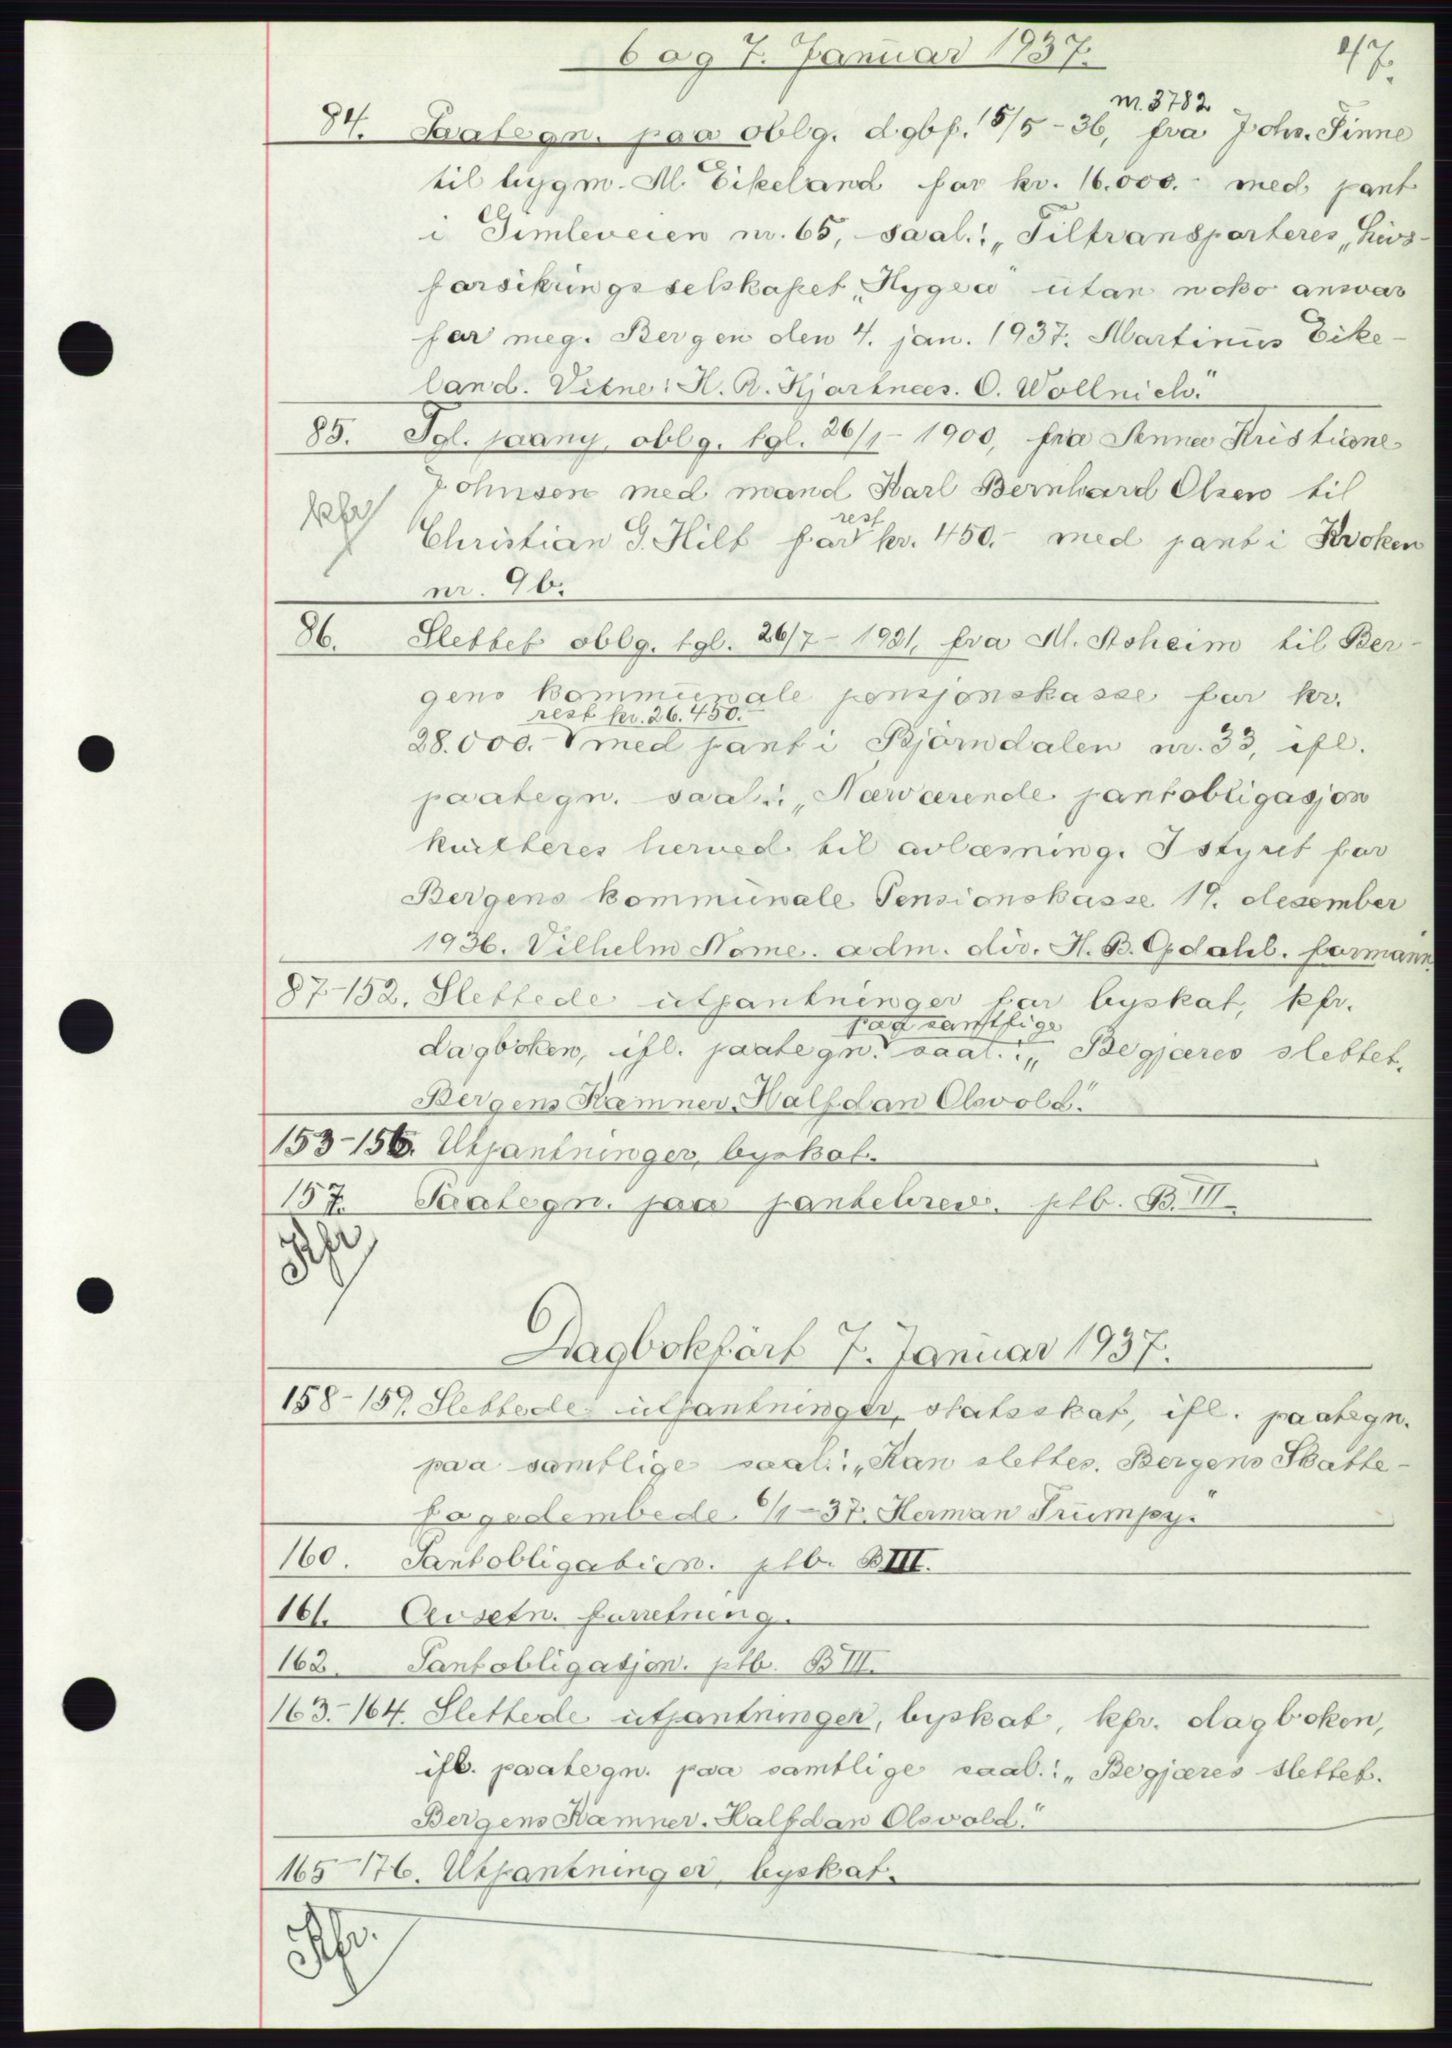 6 og 7. Januar 1937.
47.
nr. 3782
84. Paategn. paa oblg. dgbf. 15/5-36, fra Johs. Finne
til bygm. M. Eikeland for kr. 16.000.- med pant
i Gimleveien nr. 65, saal.: „Tiltransporteres „Livs-
forsikringsselskapet „Hygea" utan noko ansvar
for meg. Bergen den 4. jan. 1937. Martinus Eike-
land. Vitne: H. R. Kjartnes. O. Wollnich."
85. Tgl. paany, oblg. tgl. 26/1-1900, fra Anna Kristiane
Johnsen med mand Karl Bernhard Olsen til
kfr
rest
Christian G. Hilt for kr. 450.- med pant i Kroken
nr. 9b.
86. Slettet oblg. tgl. 26/7-1921, fra M. Asheim til Ber-
gens kommunale pensjonskasse for kr.
rest kr. 26.450.-
28.000.- V med pant i Björndalen nr. 33, ifl.
paategn. saal.: „Nærværende pantobligasjon
kvitteres herved til avlæsning. I styret for
Bergens kommunale Pensionskasse 19. desember
1936. Vilhelm Nome. adm. dir. H. B. Opdahl. formann.
87-152. Slettede utpantninger for byskat, kfr.
paa samtlige
dagboken, ifl. paategn. V saal.: „Begjæres slettet.
Bergens Kæmner. Halfdan Olsvold."
153-156. Utpantninger, byskat.
157. Paategn. paa pantebrev. ptb. B.III.
Kfr
Dagbokfört 7. Januar 1937.
158-159. Slettede utpantninger, statsskat, ifl. paategn.
paa samtlige saal.: „Kan slettes. Bergens Skatte-
fogedembede. 6/1-37. Herman Trumpy."
160. Pantobligation. ptb. BIII.
161. Avsetn. forretning.
162. Pantobligasjon. ptb. BIII.
163.-164. Slettede utpantninger, byskat, kfr. dagboken,
ifl. paategn. paa samtlige saal.: „Begjæres slettet.
Bergens Kæmner. Halfdan Olsvold."
165-176. Utpantninger, byskat.
Kfr.